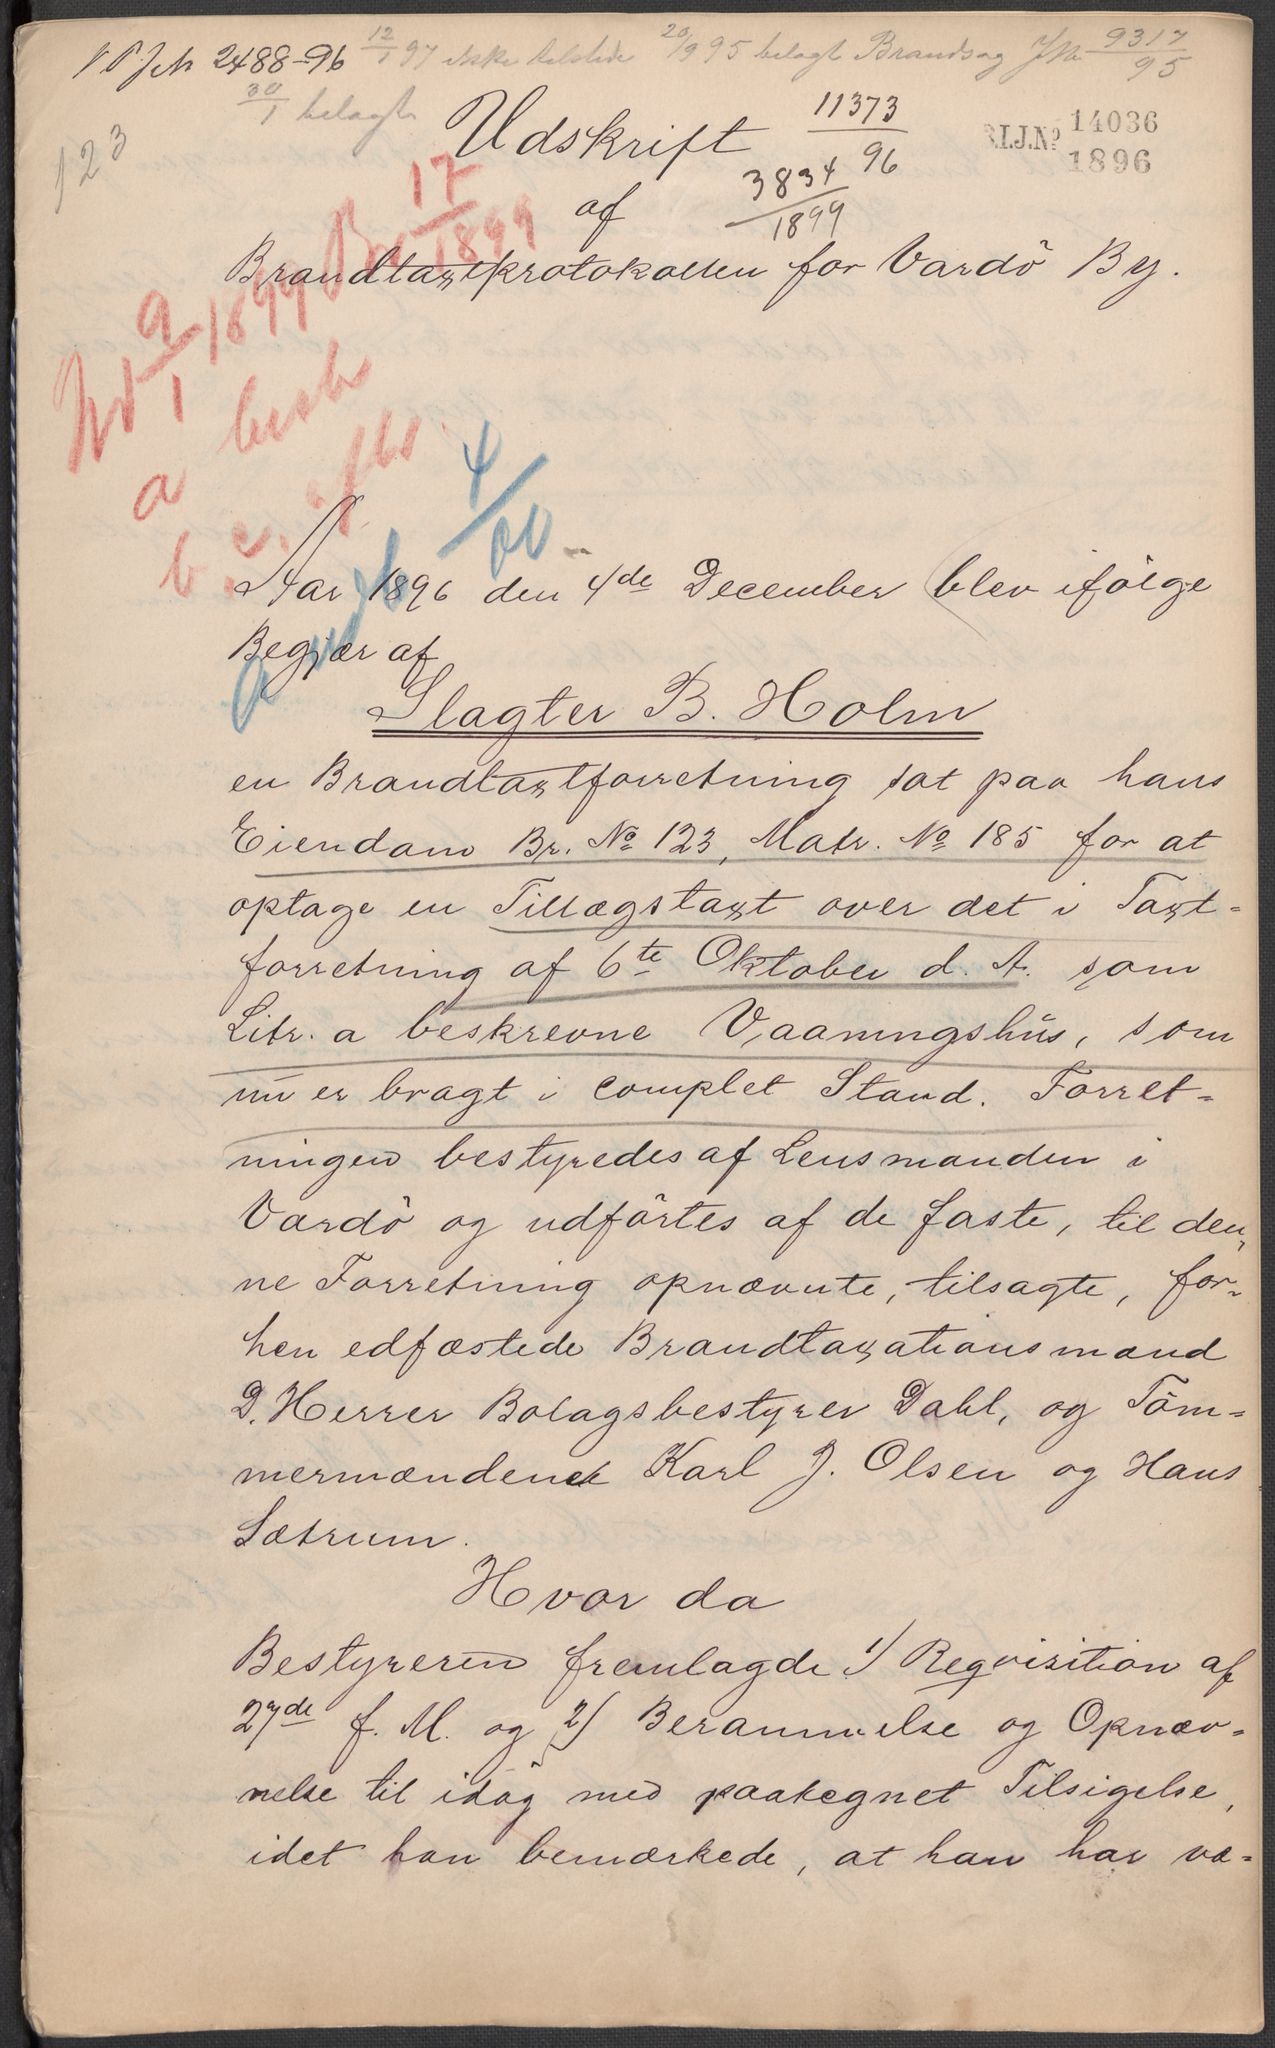 2488-96 12/1 97 ikke tilstede 20/9 95 belagt Brandsag JNr 9317/95
30/1 belagt
123
Udskrift
11373/96
14036
1896
af
3834/1899
17/1899
Brandtaxtprotokollen for Vardö By.
9/1 1899
a besk
b. c.
4/00
Aar 1896 den 4de December blev ifölge
Begjær af
Slagter B. Holm
en Brandtaxtforretning sat paa hans
Eiendom Br. No 123, Matr. No 185 for at
optage en Tillægstaxt over det i Taxt-
forretning af 6te Oktober d. A. som
Litr. a beskrevne Vaaningshüs, som
nü er bragt i complet Stand. Forret-
ningen bestyredes af Lensmanden i
Vardö og udförtes af de faste, til den-
ne Forretning opnævnte, tilsagte, for-
hen edfæstede Brandtaxationsmænd
D. Herrer Bolagsbestyrer Dahl, og Töm-
mermændene Karl J. Olsen og Hans
Sætrum.
Hvor da
Bestyreren fremlagde 1) Reqvisition af
27de f. M. og 2) Berammelse og Opnæv-
nelse til idag med paategnet Tilsigelse,
idet han bemærkede, at han har væ-